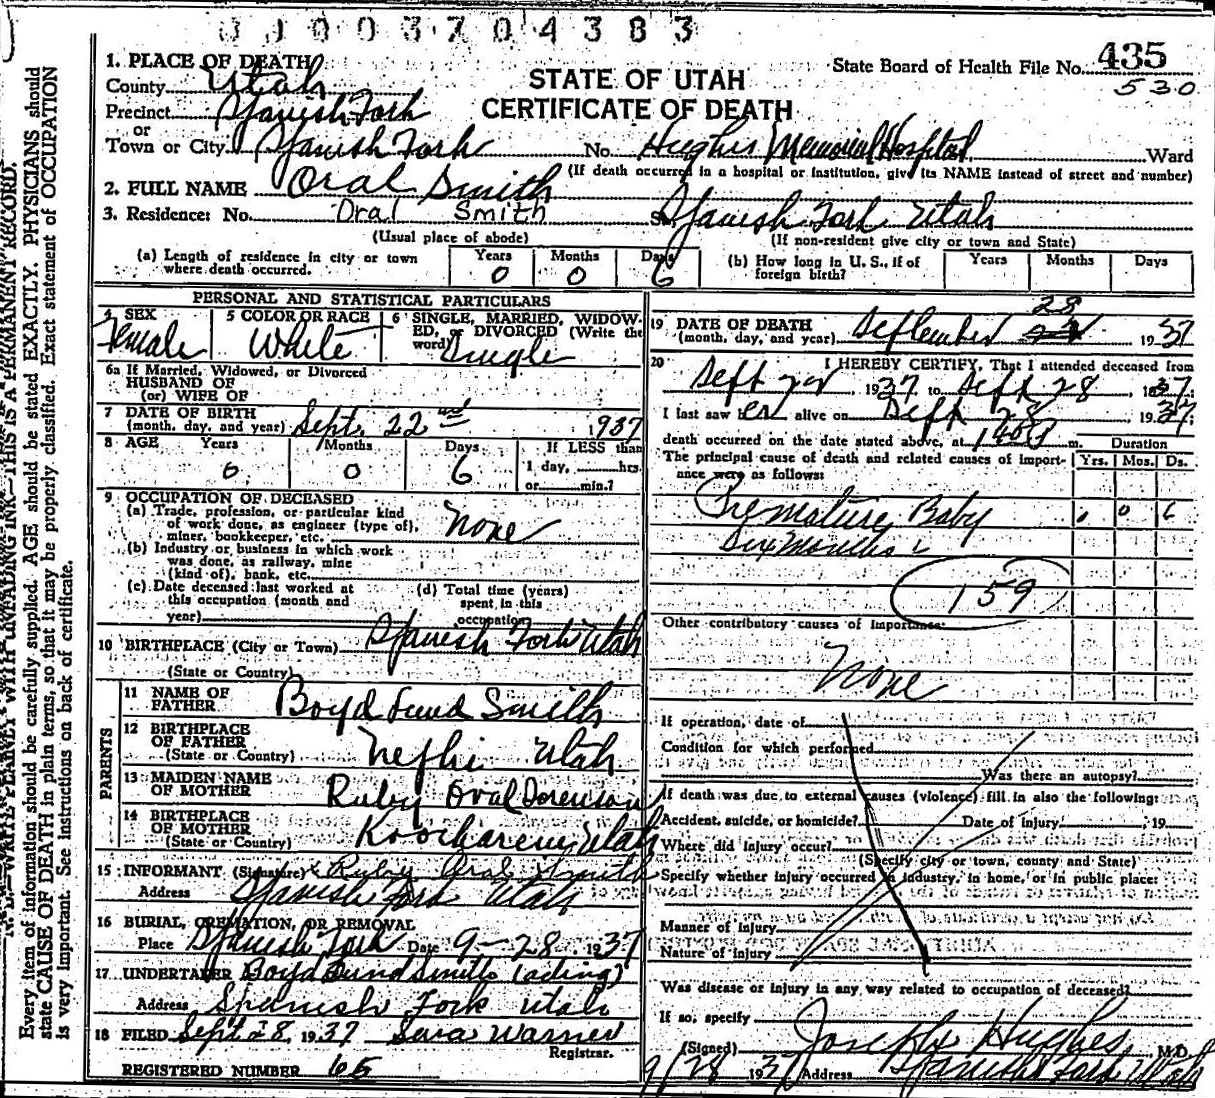 3 0 0 0 3 7 0 4 3 8 3
1. PLACE OF DEATH
County Utah
Precinct Spanish Fork
or
Town or City Spanish Fork No. Hughes Memorial Hospital Ward
STATE OF UTAH
CERTIFICATE OF DEATH
State Board of Health File No. 435
530
(If death occurred in a hospital or institution, give its NAME instead of street and number)
2. FULL NAME Oral Smith
3. Residence: No. Oral Smith St. Spanish Fork Utah
(Usual place of abode) (If non-resident give city or town and State)
(a) Length of residence in city or town where death occurred. Years 0 Months 0 Days 6
(b) How long in U. S., if of foreign birth? Years Months Days
PERSONAL AND STATISTICAL PARTICULARS
4 SEX Female
5 COLOR OR RACE White
6 SINGLE, MARRIED, WIDOWED, or DIVORCED (Write the word) Single
6a If Married, Widowed, or Divorced
HUSBAND OF
(or) WIFE OF
7 DATE OF BIRTH
(month, day, and year) Sept. 22nd 1937
8 AGE Years 0 Months 0 Days 6 If LESS than
1 day, hrs.
or min.?
9 OCCUPATION OF DECEASED
(a) Trade, profession, or particular kind
of work done, as engineer (type of),
miner, bookkeeper, etc. None
(b) Industry or business in which work
was done, as railway, mine
(kind of), bank, etc.
(c) Date deceased last worked at
this occupation (month and
year)
(d) Total time (years)
spent in this
occupation
10 BIRTHPLACE (City or Town) Spanish Fork Utah
(State or Country)
PARENTS
11 NAME OF
FATHER Boyd Fund Smith
12 BIRTHPLACE
OF FATHER
(State or Country) Nephi Utah
13 MAIDEN NAME
OF MOTHER Ruby Oral Sorenson
14 BIRTHPLACE
OF MOTHER
(State or Country) Koosharem Utah
15 INFORMANT (Signature) x Ruby Oral Smith
Address Spanish Fork Utah
16 BURIAL, CREMATION, OR REMOVAL
Place Spanish Fork Date 9-28 1937
17 UNDERTAKER Boyd Fund Smith (acting)
Address Spanish Fork Utah
18 FILED Sept 28, 1937 Sara Warner
Registrar.
REGISTERED NUMBER 65
19 DATE OF DEATH
(month, day, and year) September 28 1937
20 I HEREBY CERTIFY, That I attended deceased from
Sept 22 1937 to Sept 28 1937
I last saw her alive on Sept 28 1937
death occurred on the date stated above, at m. Duration
The principal cause of death and related causes of importance were as follows: Yrs. Mos. Ds.
Premature Baby 0 0 6
Six Months
159
Other contributory causes of importance:
None
If operation, date of
Condition for which performed
Was there an autopsy?
If death was due to external causes (violence) fill in also the following:
Accident, suicide, or homicide? Date of injury , 19
Where did injury occur?
(Specify city or town, county and State)
Specify whether injury occurred in industry, in home, or in public place:
Manner of injury
Nature of injury
Was disease or injury in any way related to occupation of deceased?
If so, specify
(Signed) Joseph Hughes M.D.
9/28 1937 Address Spanish Fork Utah
WRITE PLAINLY WITH UNFADING INK—THIS IS A PERMANENT RECORD.
Every item of information should be carefully supplied. AGE should be stated EXACTLY. PHYSICIANS should
state CAUSE OF DEATH in plain terms, so that it may be properly classified. Exact statement of OCCUPATION
is very important. See instructions on back of certificate.